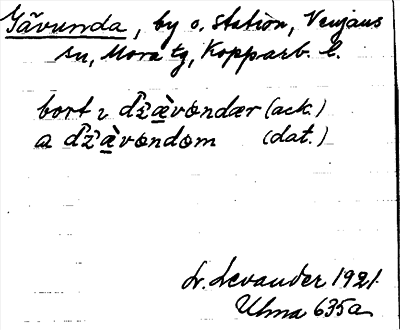 Gävunda, by o. station, Venjans
sn, Mora tg, Kopparb. l.
bort ı dz̀ævondær (ack.)
a dz̀ævondom (dat.)
L. Levander 1921.
Ulma 635a